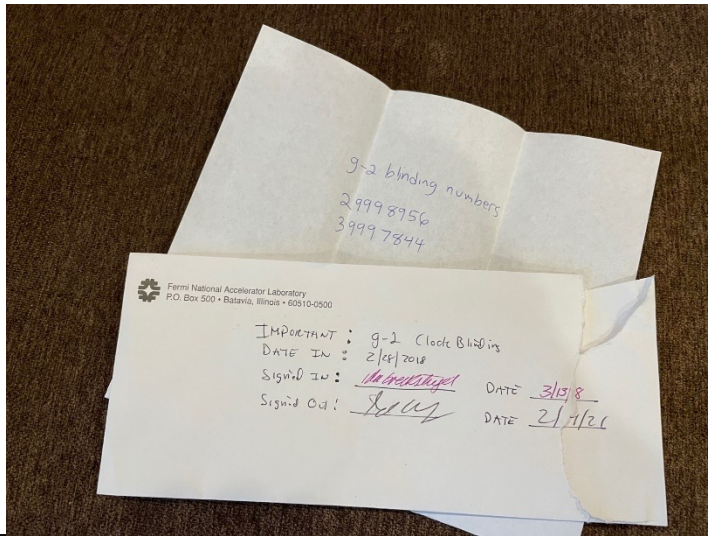 g-2 blinding numbers
29998956
39997844
Fermi National Accelerator Laboratory
P.O. Box 500 • Batavia, Illinois • 60510-0500
IMPORTANT : g-2 Clock Blinding
DATE IN : 2/28/2018
Signed IN :
DATE 3/13 8
Signed Out :
DATE 2/ /21